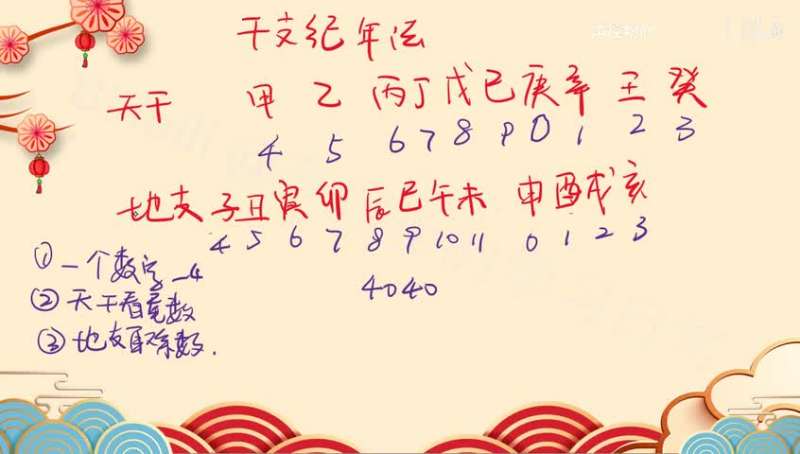 干支纪年法
天干 甲 乙 丙 丁 戊 己 庚 辛 壬 癸
4 5 6 7 8 9 0 1 2 3
地支 子 丑 寅 卯 辰 巳 午 未 申 酉 戌 亥
4 5 6 7 8 9 10 11 0 1 2 3
① 一个数字 -4
4040
② 天干看尾数
③ 地支取余数.